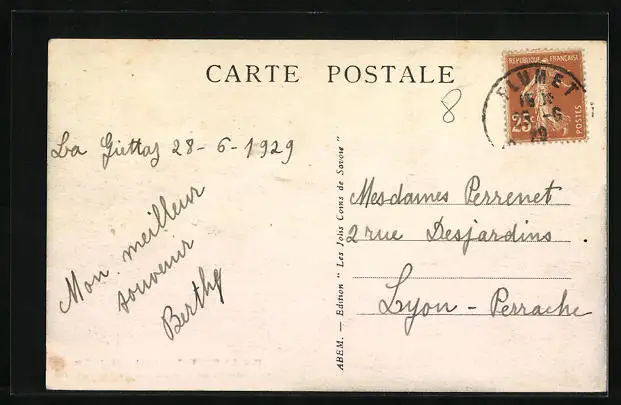 CARTE POSTALE
8
RÉPUBLIQUE FRANÇAISE
FLUMET
25c
POSTES
La Giettaz 28-6-1929
Mon meilleur
souvenir
Berthy
ABEM. — Edition " Les Jolis Coins de Savoie "
Mesdames Perrenet
2 rue Desjardins
Lyon - Perrache